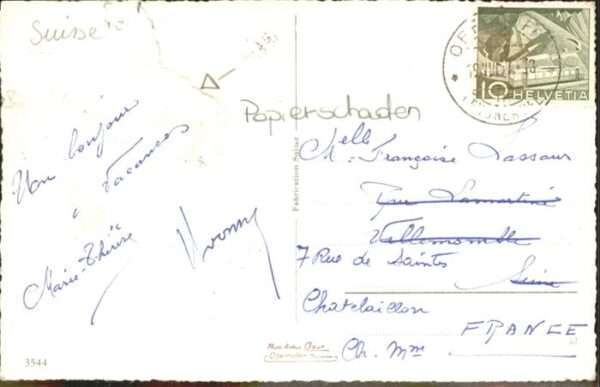 Suisse
Papierschaden
10
HELVETIA
Un bonjour
Vacances
Marie-Thérèse
Yvonne
Fabrication Suisse
Melle Françoise Lassaur
Rue Lamartine
Villemomble
Seine
7 Rue de Saintes
Chatelaillon
Ch. Mme
FRANCE
3544